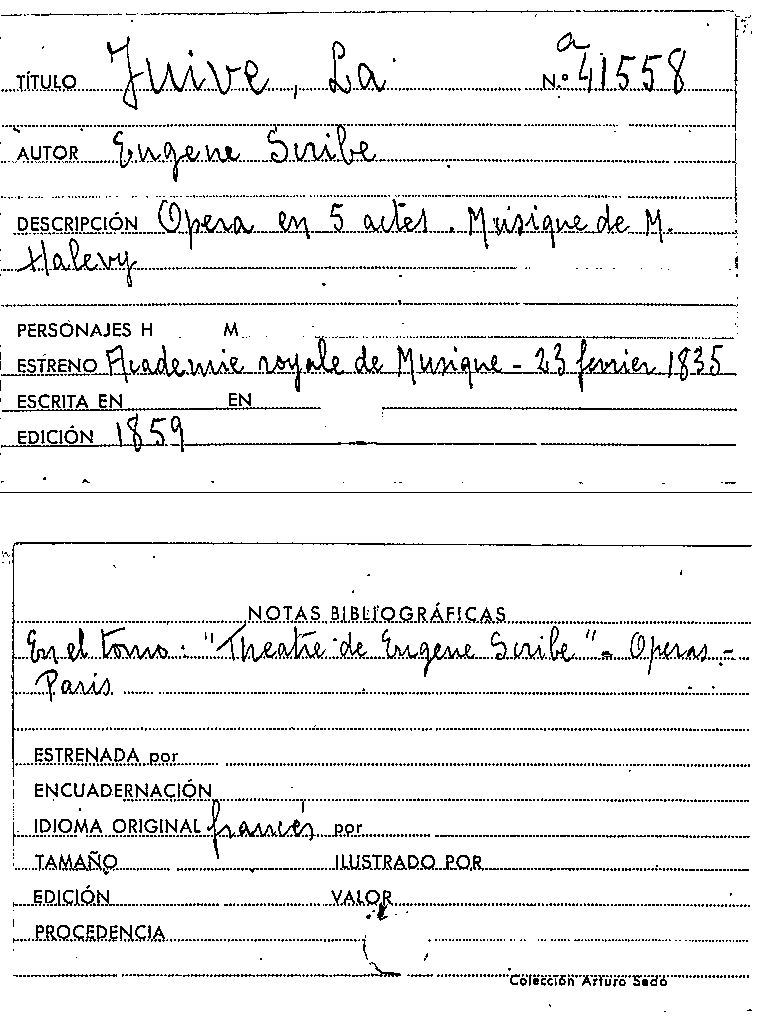 TÍTULO Juive, La N.º a 41558
AUTOR Eugene Scribe
DESCRIPCIÓN Opera en 5 actes. Musique de M.
Halevy
PERSONAJES H M
ESTRENO Academie royale de Musique - 23 fevrier 1835
ESCRITA EN EN
EDICIÓN 1859
NOTAS BIBLIOGRÁFICAS
En el tomo: "Theatre de Eugene Scribe" - Operas -
Paris
ESTRENADA por
ENCUADERNACIÓN
IDIOMA ORIGINAL francés por
TAMAÑO ILUSTRADO POR
EDICIÓN VALOR
PROCEDENCIA
Colección Arturo Sedó